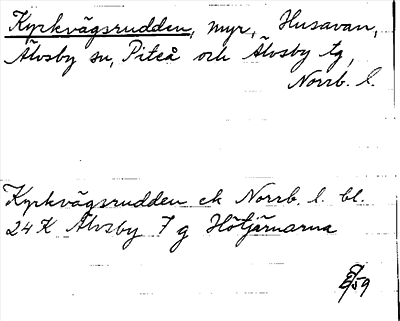 Kyrkvägsrudden, myr, Husavan,
Älvsby sn, Piteå och Älvsby tg,
Norrb. l.
Kyrkvägsrudden ek Norrb. l. bl.
24K Älvsby 7 g Hötjärnarna
59